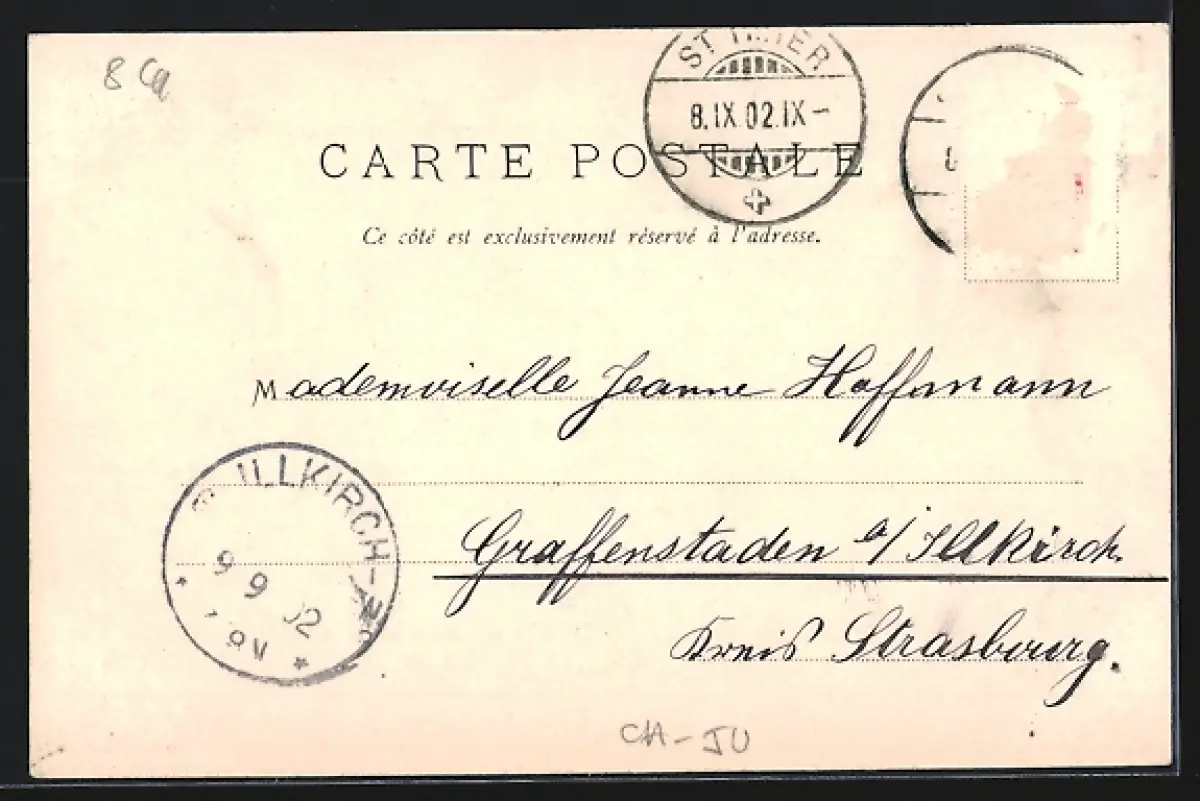 8 CH
ST IMIER
8.IX.02.IX-
CARTE POSTALE
Ce côté est exclusivement réservé à l'adresse.
Mademoiselle Jeanne Hoffmann
ILLKIRCH-
9 9 02
8V
Graffenstaden a/Illkirch.
Kreis Strasbourg.
CH-JU